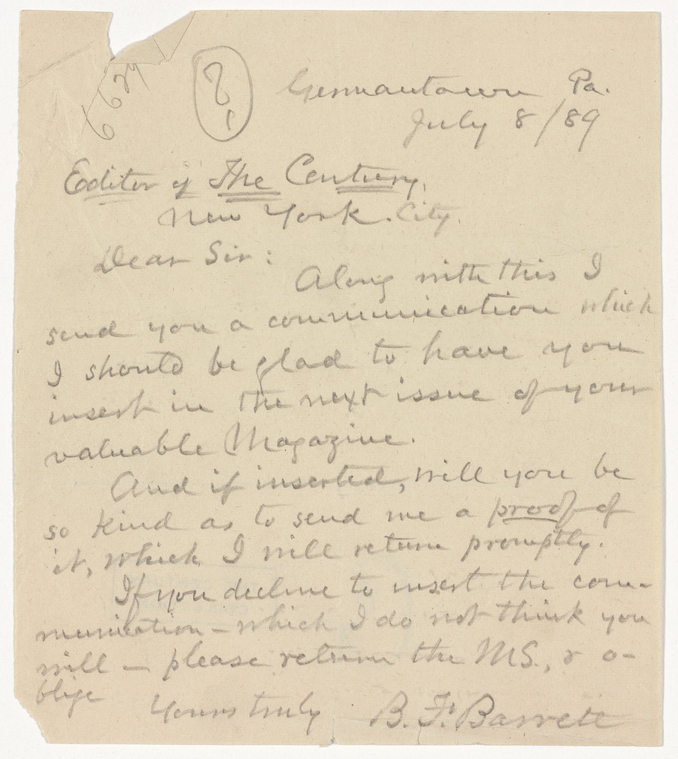 6629
Germantown Pa.
July 8/89
Editor of The Century,
New York City.
Dear Sir:
Along with this I
send you a communication which
I should be glad to have you
insert in the next issue of your
valuable Magazine.
And if inserted, will you be
so kind as to send me a proof of
it, which I will return promptly.
If you decline to insert the com-
munication - which I do not think you
will - please return the MS., & o-
blige
Yours truly B. F. Barrett